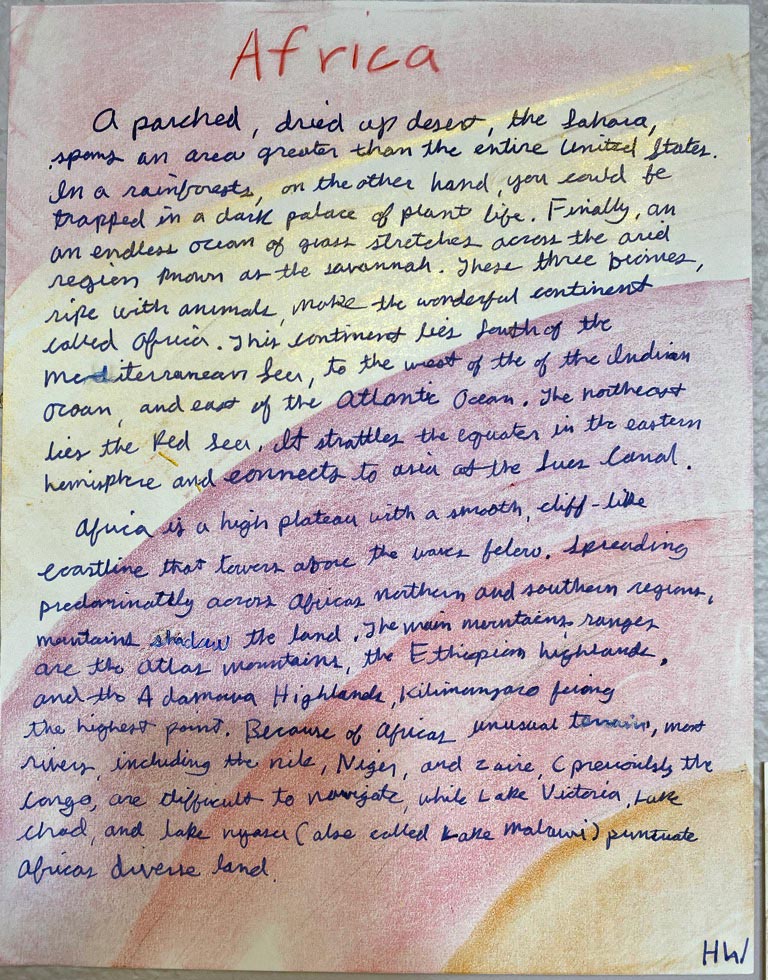 Africa
A parched, dried up desert, the Sahara,
spans an area greater than the entire United States.
In a rainforests, on the other hand, you could be
trapped in a dark palace of plant life. Finally, an
an endless ocean of grass stretches across the arid
region known as the savannah. These three biomes,
ripe with animals, make the wonderful continent
called Africa. This continent lies South of the
Mediterranean Sea, to the west of the of the Indian
Ocean, and east of the Atlantic Ocean. The northeast
lies the Red Sea. It strattles the equater in the eastern
hemisphere and connects to asia at the Sues Canal.
Africa is a high plateau with a smooth, cliff-like
coastline that towers above the waves below. Spreading
predominately across Africas northern and southern regions,
mountains shadow the land. The main mountains ranges
are the Atlas mountains, the Ethiopian highlands,
and the Adamawa Highlands, Kilimanjaro being
the highest point. Because of Africas unusual terrain, most
rivers, including the nile, Niger, and Zaire, (previously the
Congo, are difficult to navigate, while Lake Victoria, Lake
Chad, and lake nyasa (also called Lake Malawi) puntuate
Africas diverse land.
HW